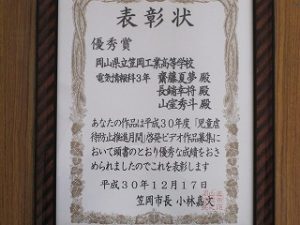 表彰状
優秀賞
岡山県立笠岡工業高等学校
電気情報科3年 齋藤夏夢 殿
長鋪幸将 殿
山室秀斗 殿
あなたの作品は平成30年度「児童虐
待防止推進月間」啓発ビデオ作品募集に
おいて頭書のとおり優秀な成績をおさ
められましたのでこれを表彰します
平成30年12月17日
笠岡市長 小林嘉文